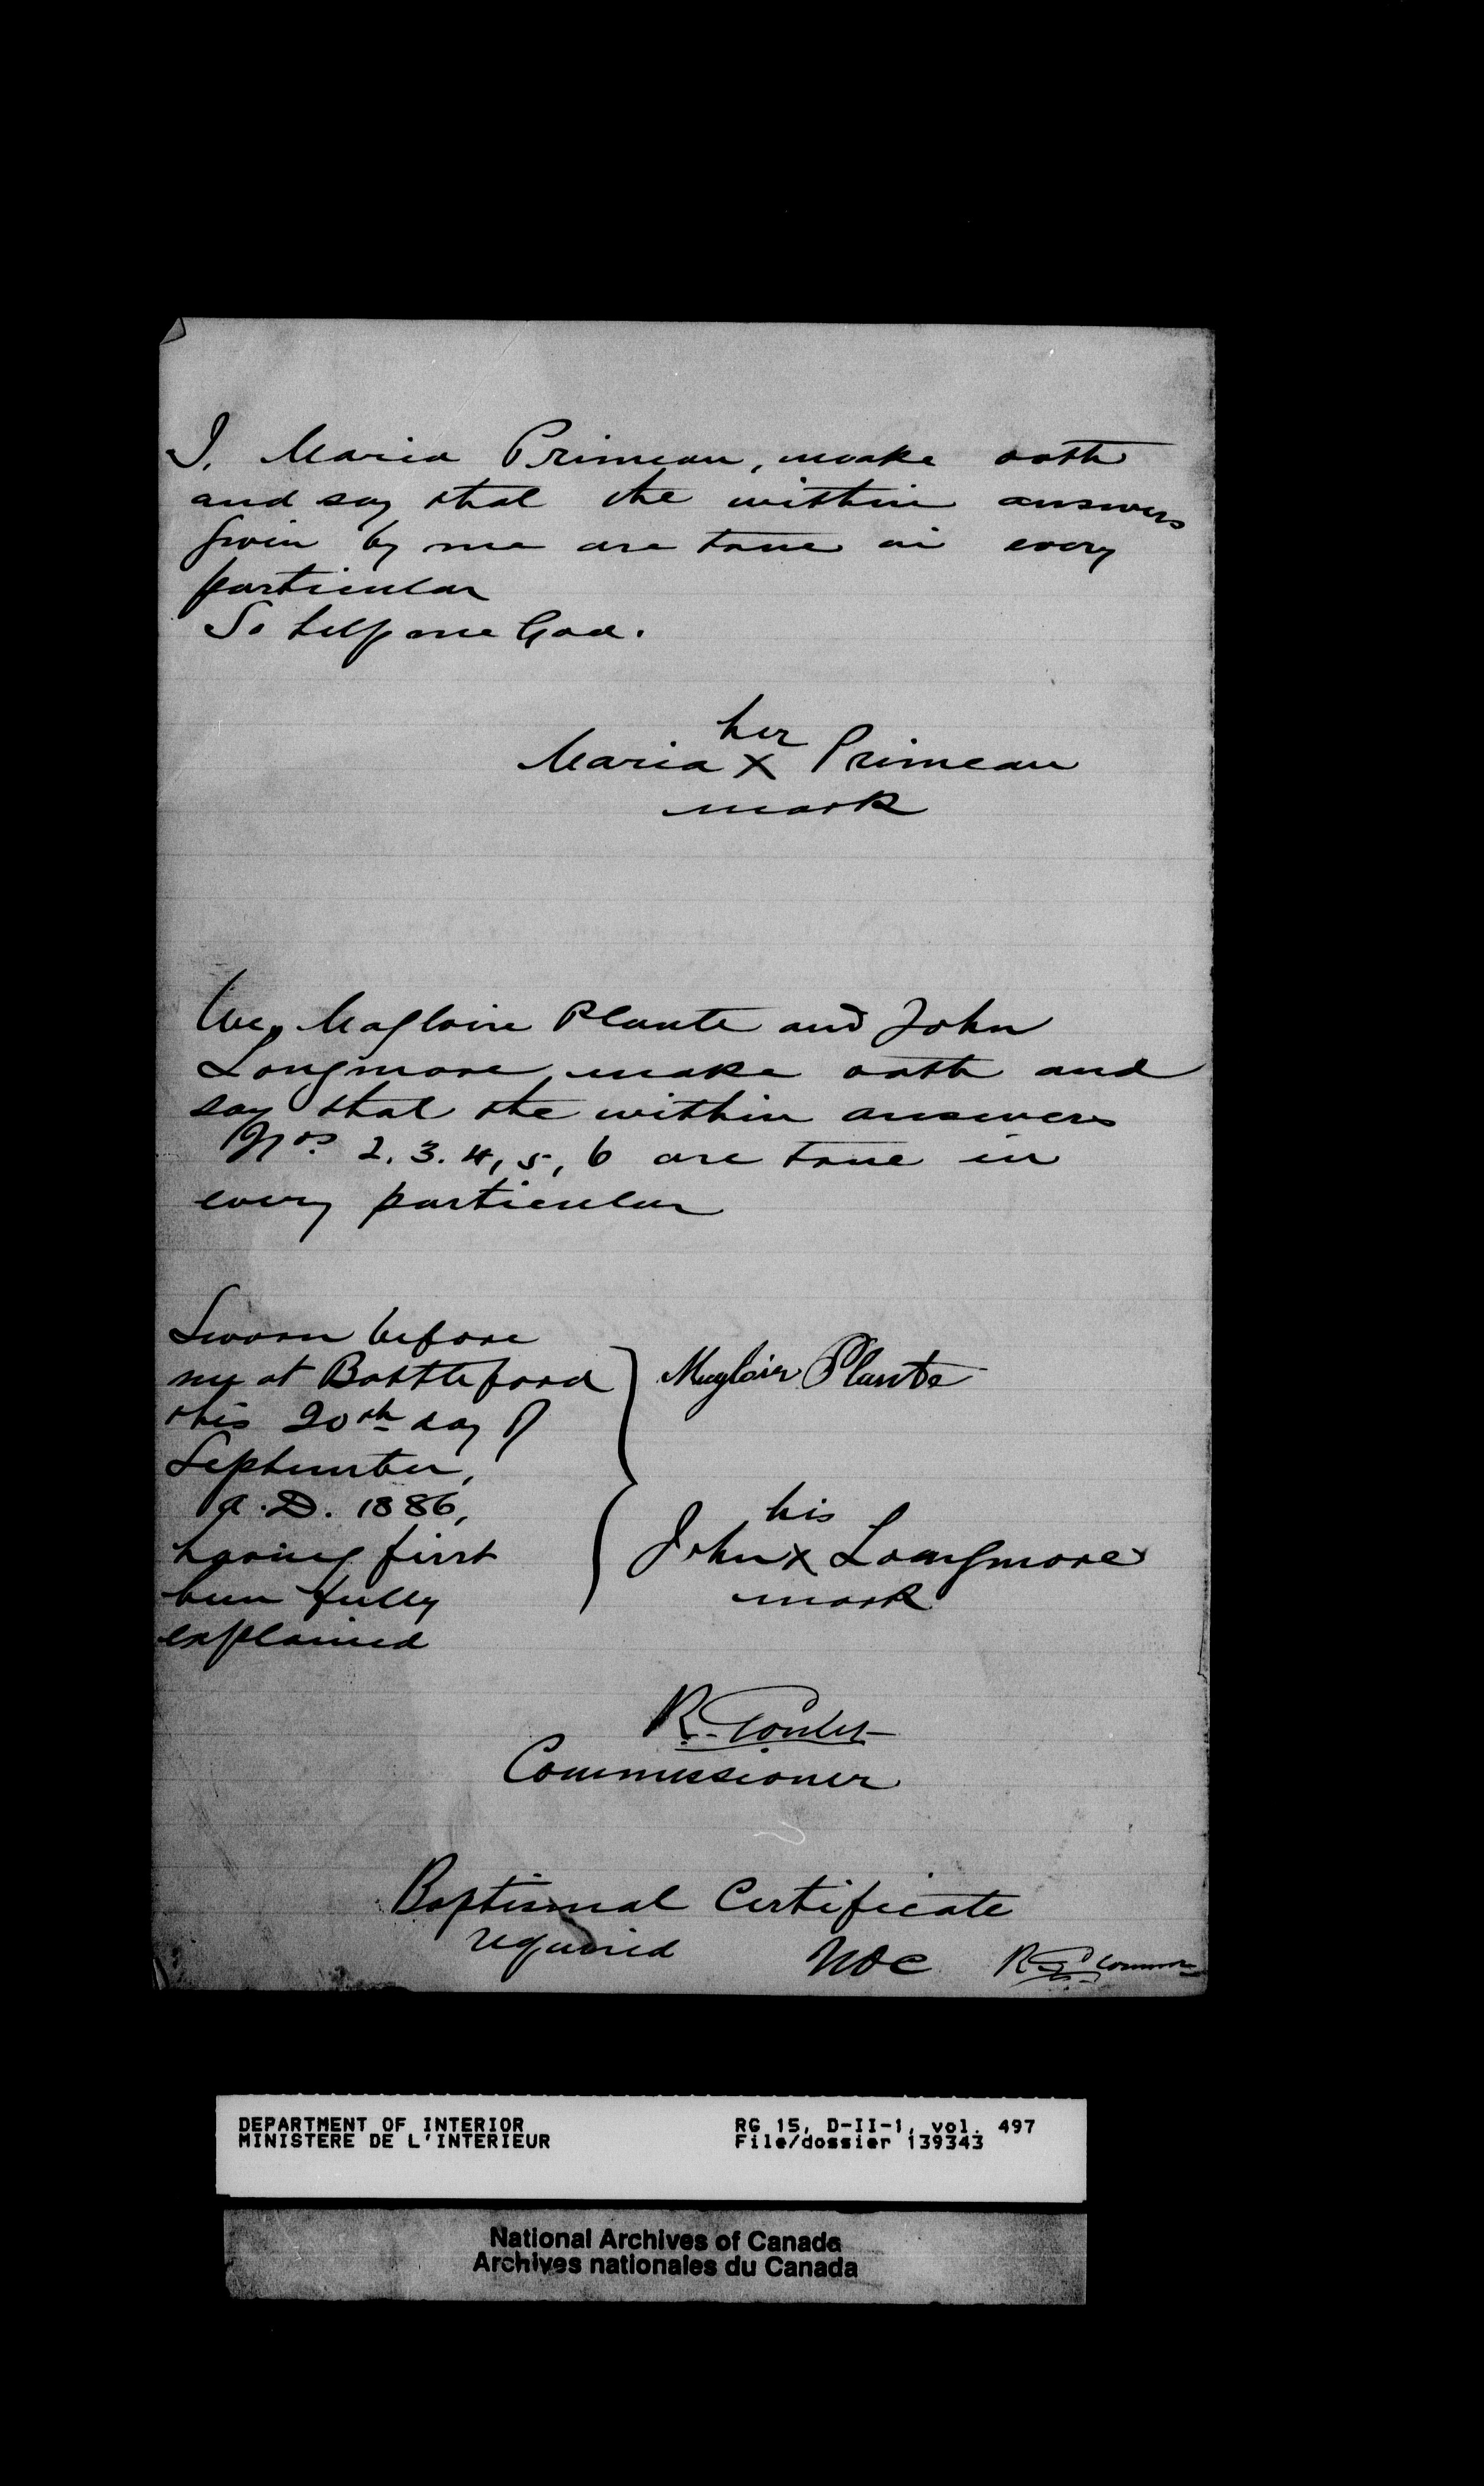 I, Maria Primeau, make oath
and say that the within answers
given by me are true in every
particular
So help me God.
her
Maria X Primeau
mark
We, Magloire Plante and John
Longmore, make oath and
say that the within answers
Nos. 2. 3. 4, 5, 6 are true in
every particular
Sworn before
me at Battleford
this 20th day of
September,
A.D. 1886,
having first
been fully
explained
Magloir Plante
his
John X Longmore
mark
R. Goulet
Commissioner
Baptismal Certificate
required
NOC R. G.
DEPARTMENT OF INTERIOR
MINISTERE DE L'INTERIEUR
RG 15, D-II-1, vol. 497
File/dossier 139343
National Archives of Canada
Archives nationales du Canada